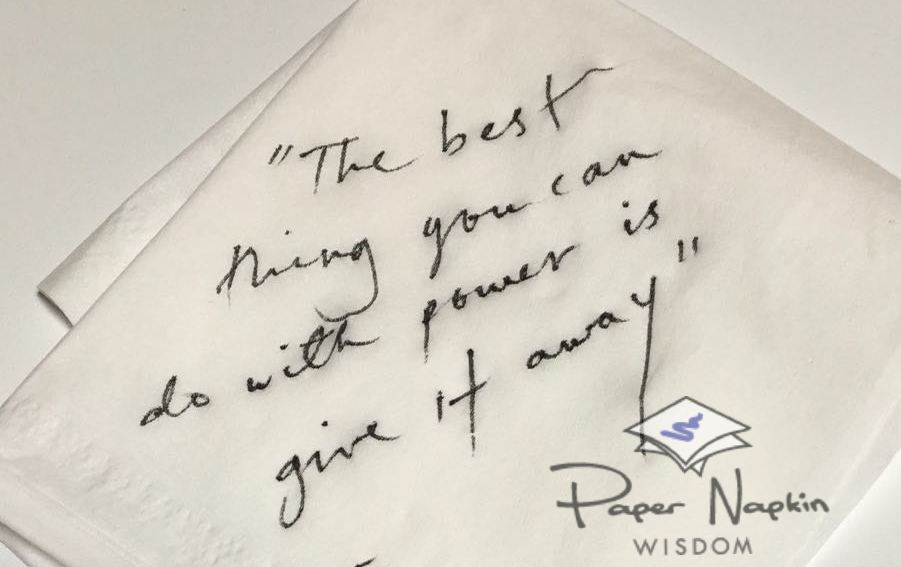 "The best
thing you can
do with power is
give it away"
Paper Napkin
WISDOM